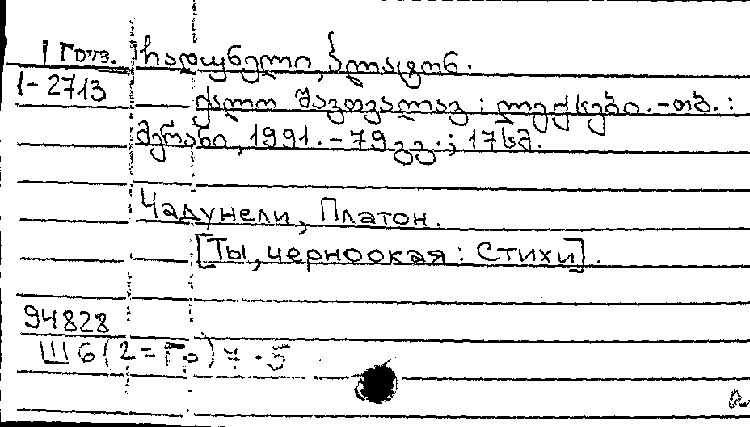 I Груз. ჩადუნელი, პლატონ.
1-2713
ქალო შავთვალავ : ლექსები. - თბ. :
მერანი, 1991. - 79 გვ. ; 17 სმ.
Чадунели, Платон.
[Ты, черноокая : Стихи].
94828
Ш6(2=Гр)7.5